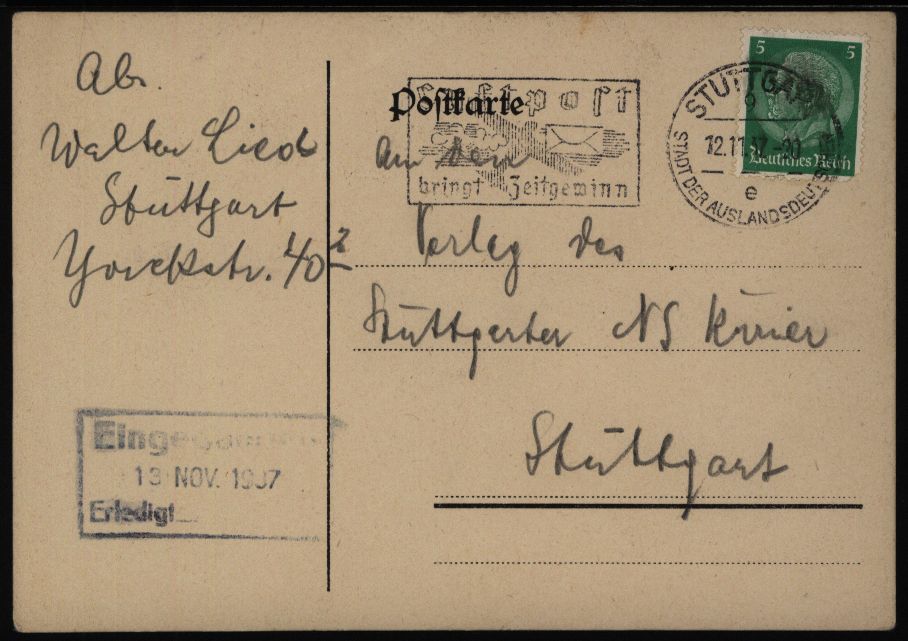 Abs.
Walter Lied
Stuttgart
Yorckstr. 40
Postkarte
Luftpost
bringt Zeitgewinn
An den
Verlag des
Stuttgarter NS Kurier
Stuttgart
5 5
Deutsches Reich
STUTTGART
9
12.11.37-20
e
STADT DER AUSLANDSDEUTSCHEN
Eingegangen
13 NOV. 1937
Erledigt